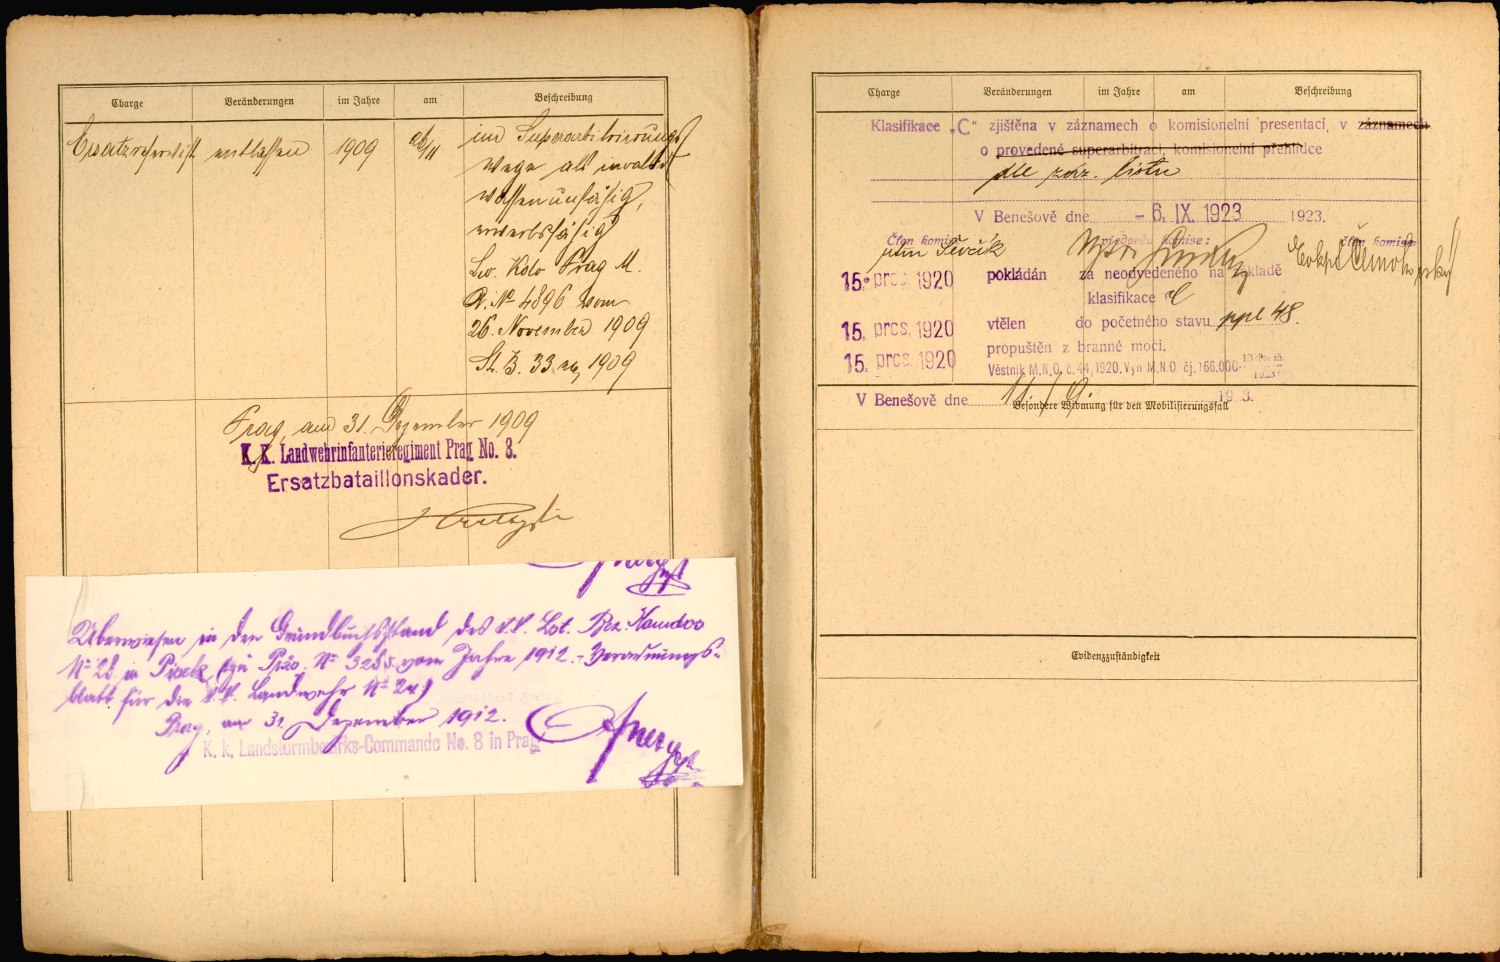 Charge Veränderungen im Jahre am Beschreibung
Ersatzreservist entlassen 1909 26/11 im Superarbitrierungs
wege als invalid
waffenunfähig,
erwerbsfähig
Lw. Kdo Prag M.
A. No 4896 vom
26. November 1909
St. B. 33 1909
Prag, am 31. Dezember 1909
K. K. Landwehrinfanterieregiment Prag No. 8.
Ersatzbataillonskader.
Überwiesen in den Grundbuchsstand des k.k. Lst. Bez. Komdos
No 28 in Pisek (zu Präs. No 3285 vom Jahre 1912.- Verordnungs-
blatt für die k.k. Landwehr No
Prag, am 31. Dezember 1912.
K. k. Landsturmbezirks-Commando No. 8 in Prag
Charge Veränderungen im Jahre am Beschreibung
Klasifikace „C“ zjištěna v záznamech o komisionelní presentací, v záznamech
o provedené superarbitraci, komisionelní přehlídce
dle záz. listu
V Benešově dne - 6. IX. 1923 1923.
Člen komise: předseda komise: člen komise:
Ševčík
15. pros. 1920 pokládán za neodvedeného na základě
klasifikace C
15. pros. 1920 vtělen do početného stavu ppl 48.
15. pros. 1920 propuštěn z branné moci.
Věstník M.N.O. č. 44/1920. Vyn M.N.O čj. 166.000
V Benešově dne 11./9. 1923.
Besondere Widmung für den Mobilisierungsfall
Evidenzzuständigkeit